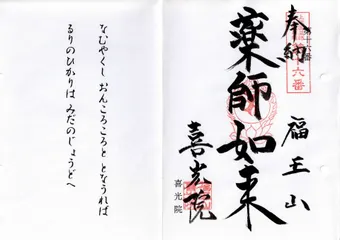 奉納
第十六番
十六番
薬師如来
福王山
喜光院
喜光院
なむやくし おんころころと となうれば
るりのひかりは みだのじょうどへ